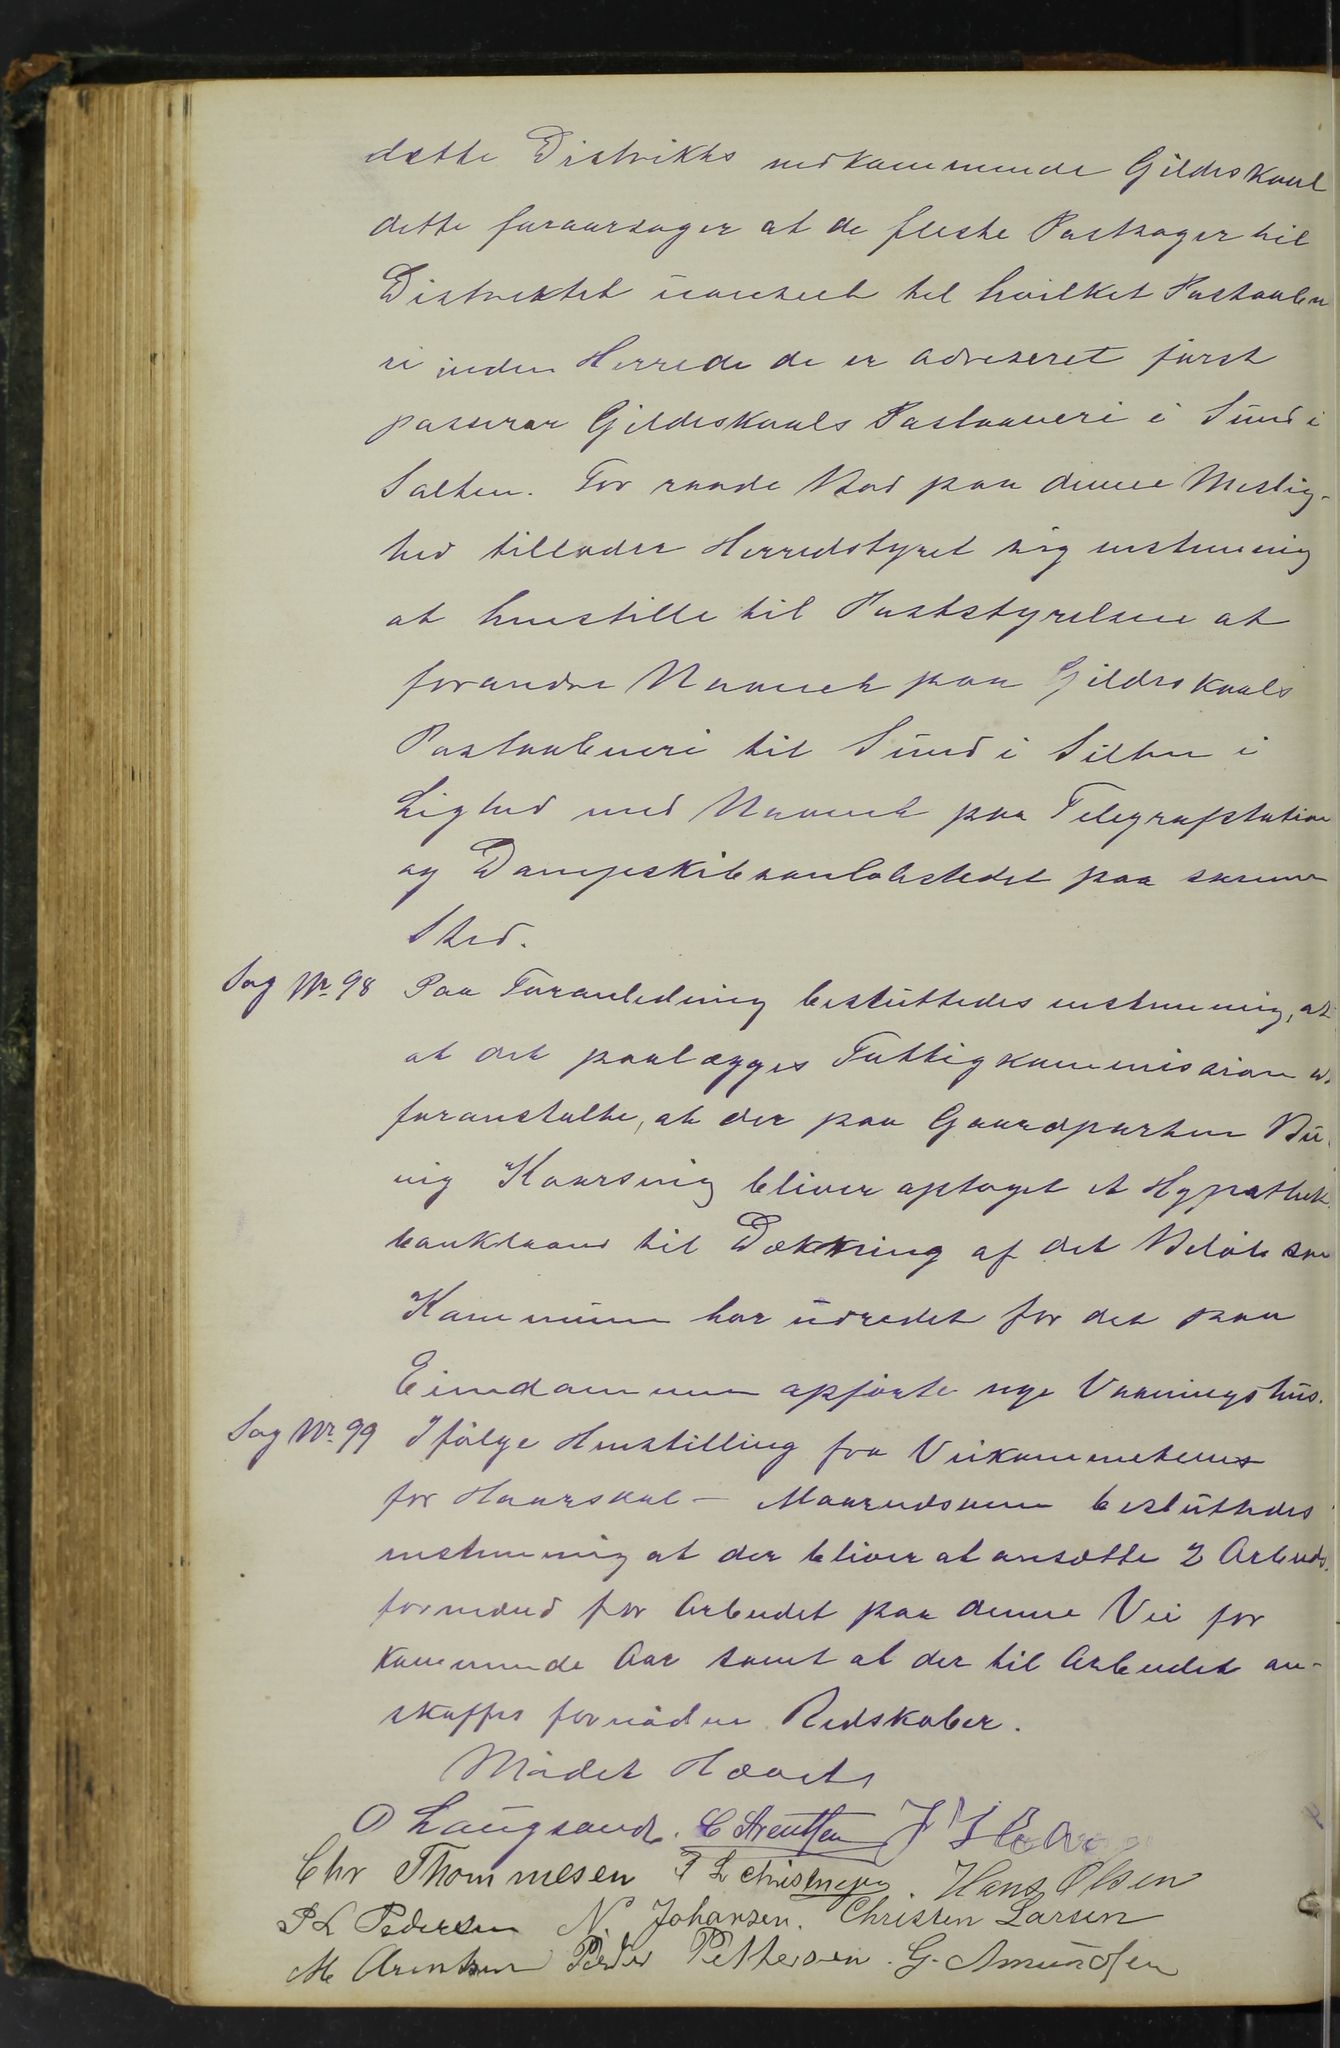 dette Distrikts vedkommende Gildeskaal
dette foraarsager at de fleste Postsager til
Distriktet uanseet til hvilket Postaabne
ri inden Herrede de er adreseret først
passerer Gjldeskaals Postaaveri i Sund i
Salten. For raade Bod paa denne Mislig-
hed tillader Herredstyret sig enstemmig
at henstille til Poststyrelsen at
forandre Navnet paa Gildeskaals
Postaabneri til Sund i Salten i
Lighed med Navnet paa Telegrafstation
og Dampskibsanløbstedet paa samme
Sted.
Sag Nr. 98 Paa Foranledning besluttedes enstemmig, at
at det paalægges Fattigkommission at
foranstalte, at der paa Gaardparten
Kaarsvig bliver optaget et Hypothek
banklaan til Dækkning af det Beløb som
Kommunen har udredet for det paa
Eiendommen opførte nye Vaaningshus.
Sag Nr. 99 Ifølge Henstilling fra Veikommeteens
for Haarskal - Maarndsvnn besluttedes
enstemmig at der bliver at ansætte 2 Arbeids
formænd for Arbeidet paa denne Vei for
kommende Aar samt at der til Arbeidet an-
skaffes fornødne Redskaber.
Mødet Hævet
O Laugsand. C Arentsen
Chr Thommesen P L Christensen. Hans Olsen
P L Pedersen N. Johansen. Christen Larsen
M Arentsen Peder Pettersen. G. Amundsen